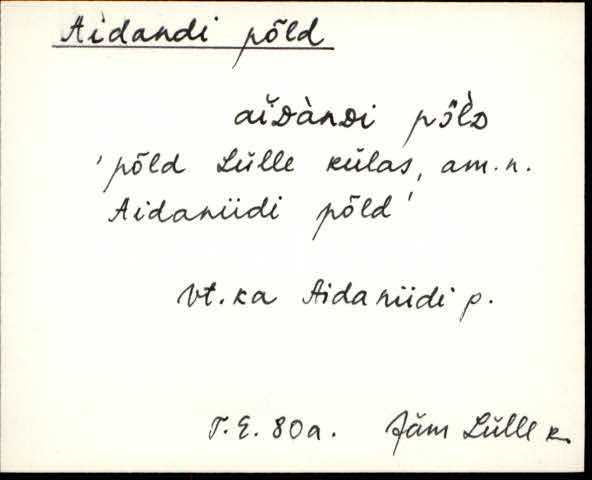 Aidandi põld
aiᴅàɴᴅi põ̀lᴅ
'põld Lülle külas, am. n.
Aidaniidi põld'
vt. ka Aidaniidi p.
T. E. 80a. Jäm Lülle k.